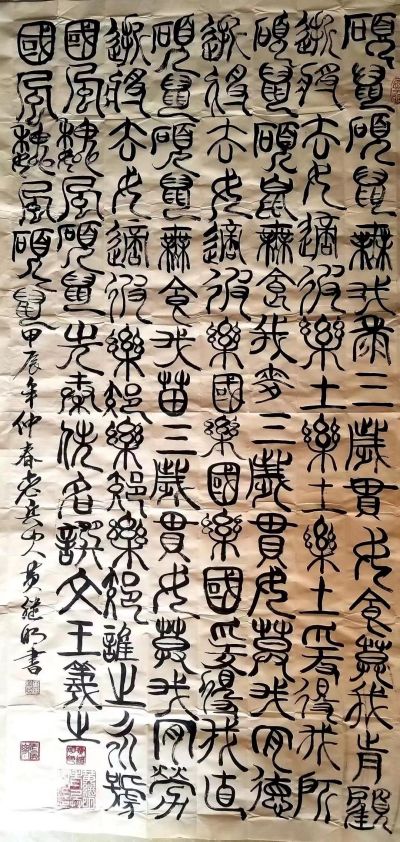 碩鼠碩鼠無我黍三歲貫女食莫我肯顧
逝將去女適彼樂土樂土樂土爰得我所
碩鼠碩鼠無食我麥三歲貫女莫我肯德
逝將去女適彼樂國樂國樂國爰得我直
碩鼠碩鼠無食我苗三歲貫女莫我肯勞
逝將去女適彼樂郊樂郊樂郊誰之永號
國風魏風碩鼠先秦佚名譔文王羲之
國風魏風碩鼠甲辰年仲春老兵黃繼明書